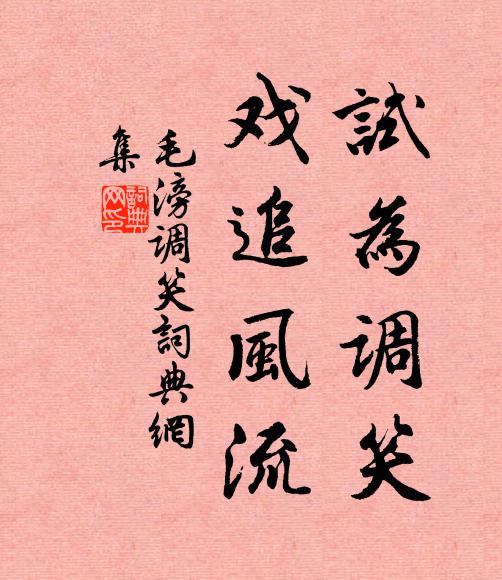 試為调笑
戏追風流
毛滂调笑詞典網
集
詞典
网印